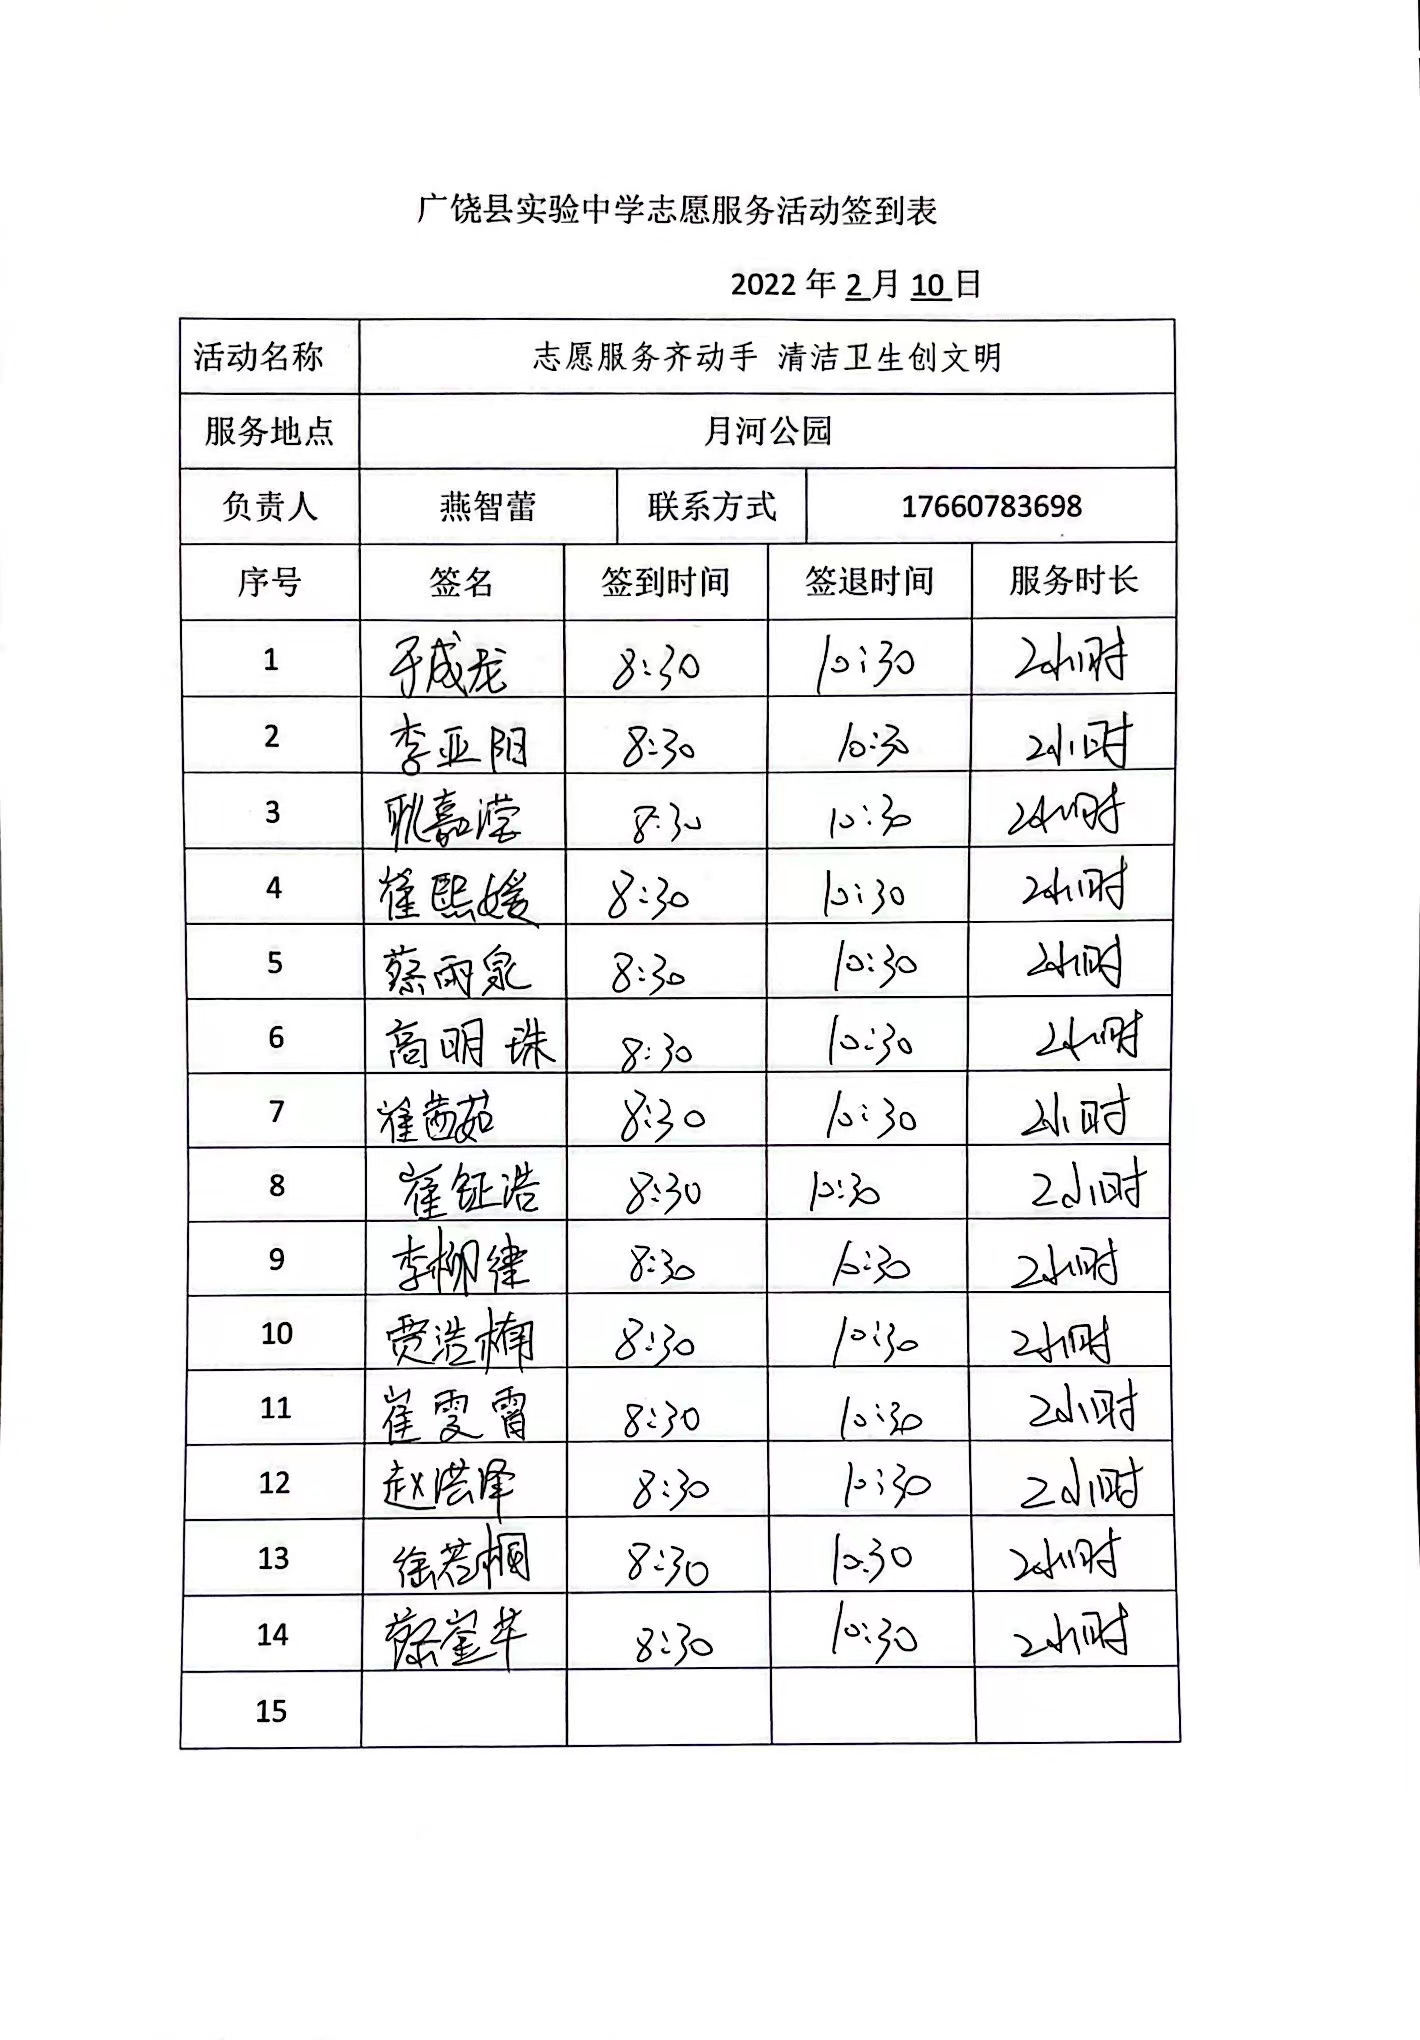 广饶县实验中学志愿服务活动签到表
2022 年 2 月 10 日
活动名称 志愿服务齐动手 清洁卫生创文明
服务地点 月河公园
负责人 燕智蕾 联系方式 17660783698
序号 签名 签到时间 签退时间 服务时长
1 于成龙 8:30 10:30 2小时
2 李亚阳 8:30 10:30 2小时
3 耿嘉滢 8:30 10:30 2小时
4 崔熙媛 8:30 10:30 2小时
5 蔡雨泉 8:30 10:30 2小时
6 高明珠 8:30 10:30 2小时
7 崔茜茹 8:30 10:30 2小时
8 崔钲浩 8:30 10:30 2小时
9 李柳律 8:30 10:30 2小时
10 贾浩楠 8:30 10:30 2小时
11 崔雯霄 8:30 10:30 2小时
12 赵洪泽 8:30 10:30 2小时
13 徐若桐 8:30 10:30 2小时
14 8:30 10:30 2小时
15